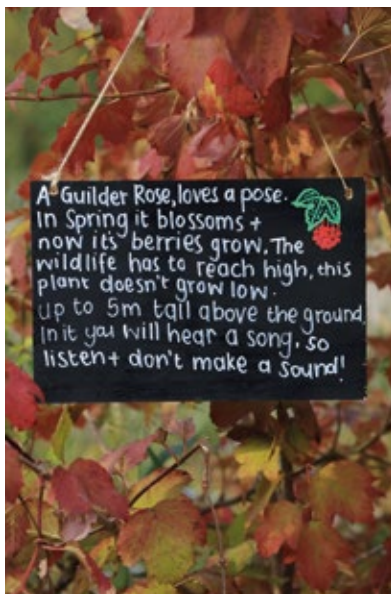 A Guilder Rose, loves a pose.
In Spring it blossoms +
now it's berries grow. The
wildlife has to reach high, this
plant doesn't grow low.
Up to 5m tall above the ground.
In it you will hear a song, so
listen + don't make a sound!